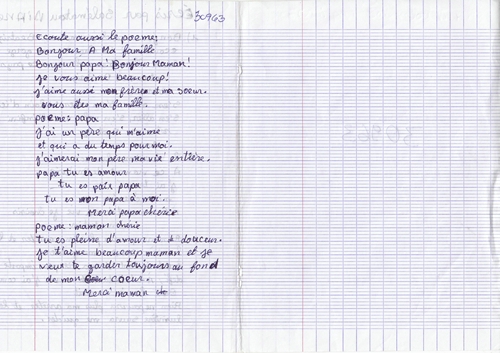 30963
Ecoute aussi le poeme;
Bonjour A Ma famille
Bonjour papa! Bonjour Maman!
Je vous aime beaucoup!
J'aime aussi mon frère et ma soeur.
vous êtes ma famille.
poeme: papa
J'ai un père qui m'aime
et qui a du temps pour moi.
J'aimerai mon père ma vie entière.
papa tu es amour
tu es paix papa
Tu es mon papa à moi.
Merci papa chérie
poeme: maman chérie
Tu es pleine d'amour et de douceur.
Je t'aime beaucoup maman et je
veux te garder toujours au fond
de mon coeur.
Merci maman